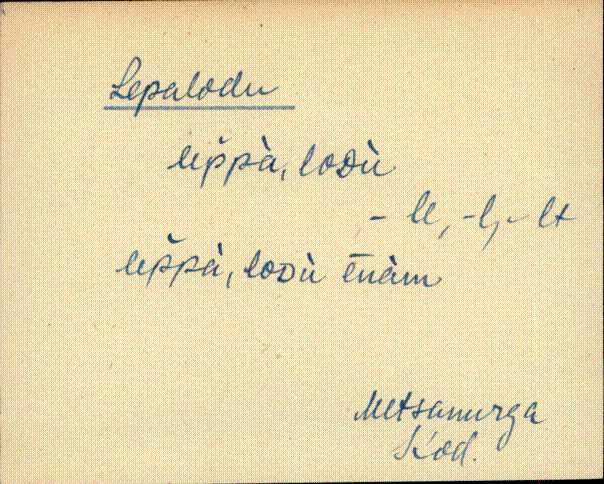 Lepalodu
lep̆pà, loᴅù
- le, -l, - lt
lep̆pà, loᴅù ēnàm
Metsanurga
Kod.